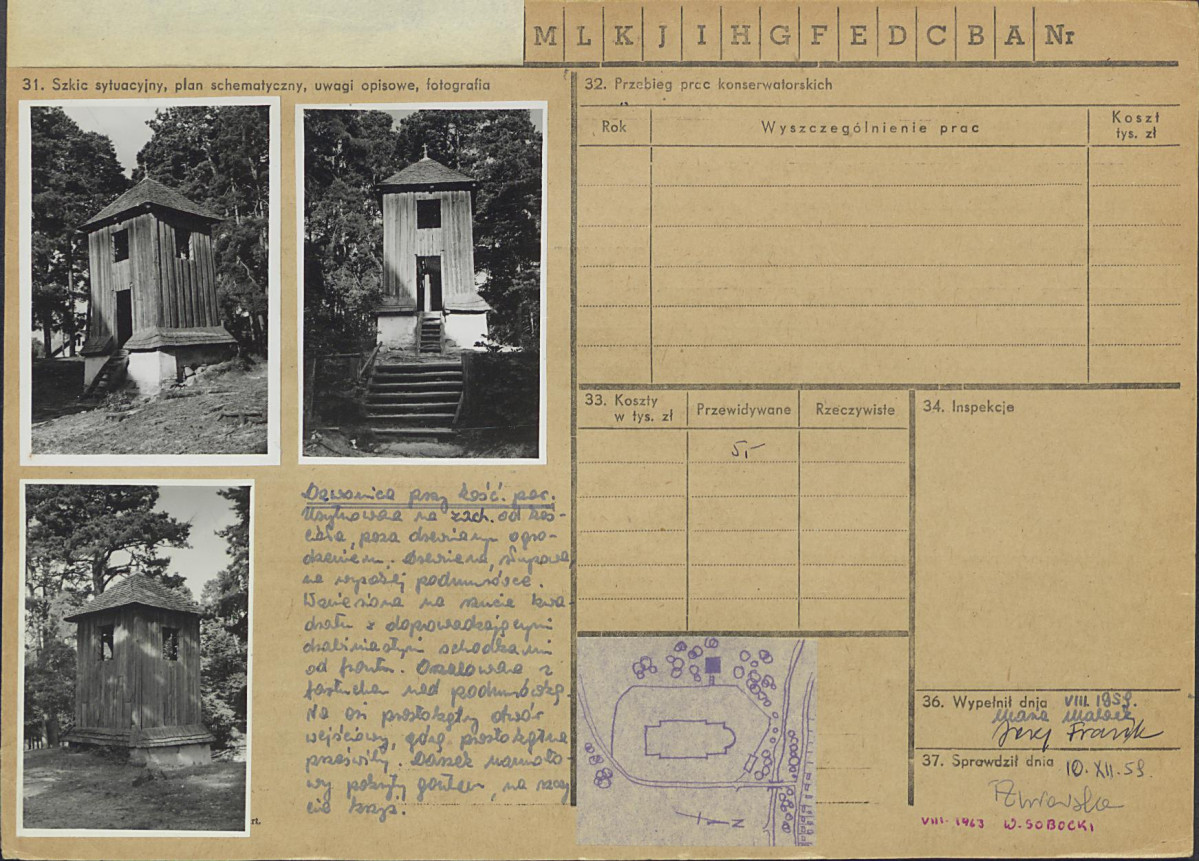 M L K J I H G F E D C B A Nr
31. Szkic sytuacyjny, plan schematyczny, uwagi opisowe, fotografia
Dzwonnica przy kość. par.
Usytuowana na zach. od koś-
cioła, poza drewnianym ogro-
dzeniem. Drewniana, słupowa,
na wysokiej podmurówce.
Wzniesiona na rzucie kwa-
dratu z doprowadzającymi
drabiniastymi schodkami
od frontu. Oszalowana z
fartuchem nad podmurówką.
Na osi prostokątny otwór
wejściowy, górą prostokątne
prześwity. Daszek namioto-
wy pokryty gontem, na szczy
cie krzyż.
rt.
32. Przebieg prac konserwatorskich
Rok
Wyszczególnienie prac
Koszt
tys. zł
33. Koszty
w tys. zł
Przewidywane
Rzeczywiste
5,-
34. Inspekcje
N
36. Wypełnił dnia VIII 1959.
37. Sprawdził dnia 10.XII.59
VIII-1963 W. SOBOCKI